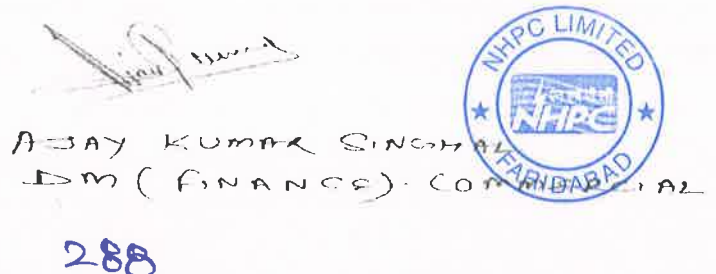 NHPC LIMITED
एन एच पी सी
NHPC
FARIDABAD
AJAY KUMAR SINGHAL
DM (FINANCE). COMMERCIAL
288